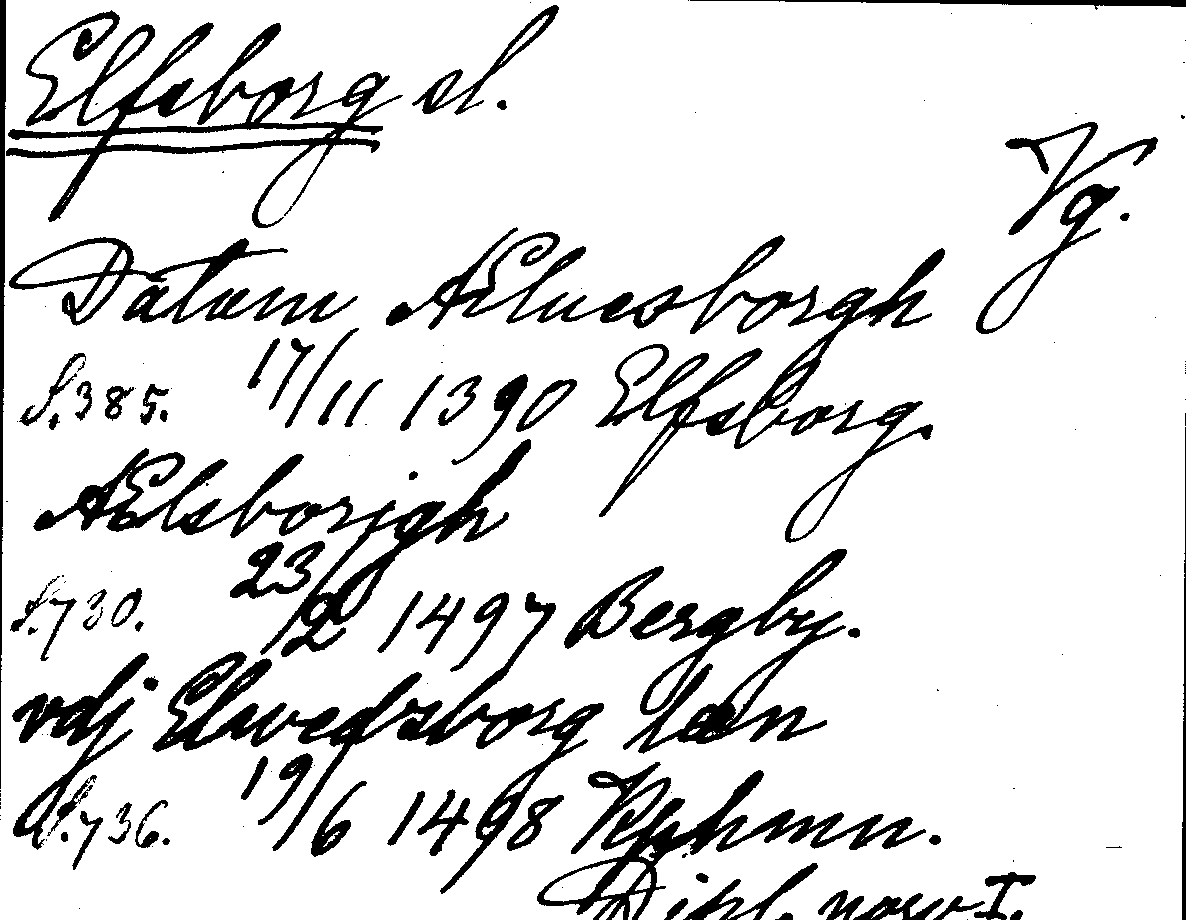 Elfsborg sl.
Vg.
Datum AEluesborgh
S.385. 17/11 1390 Elfsborg.
AElsborjgh
S.730. 23/2 1497 Bergby.
vdj Elwedzborg læn
S.736. 19/6 1498 Kphmn.
Dipl. norv. I.